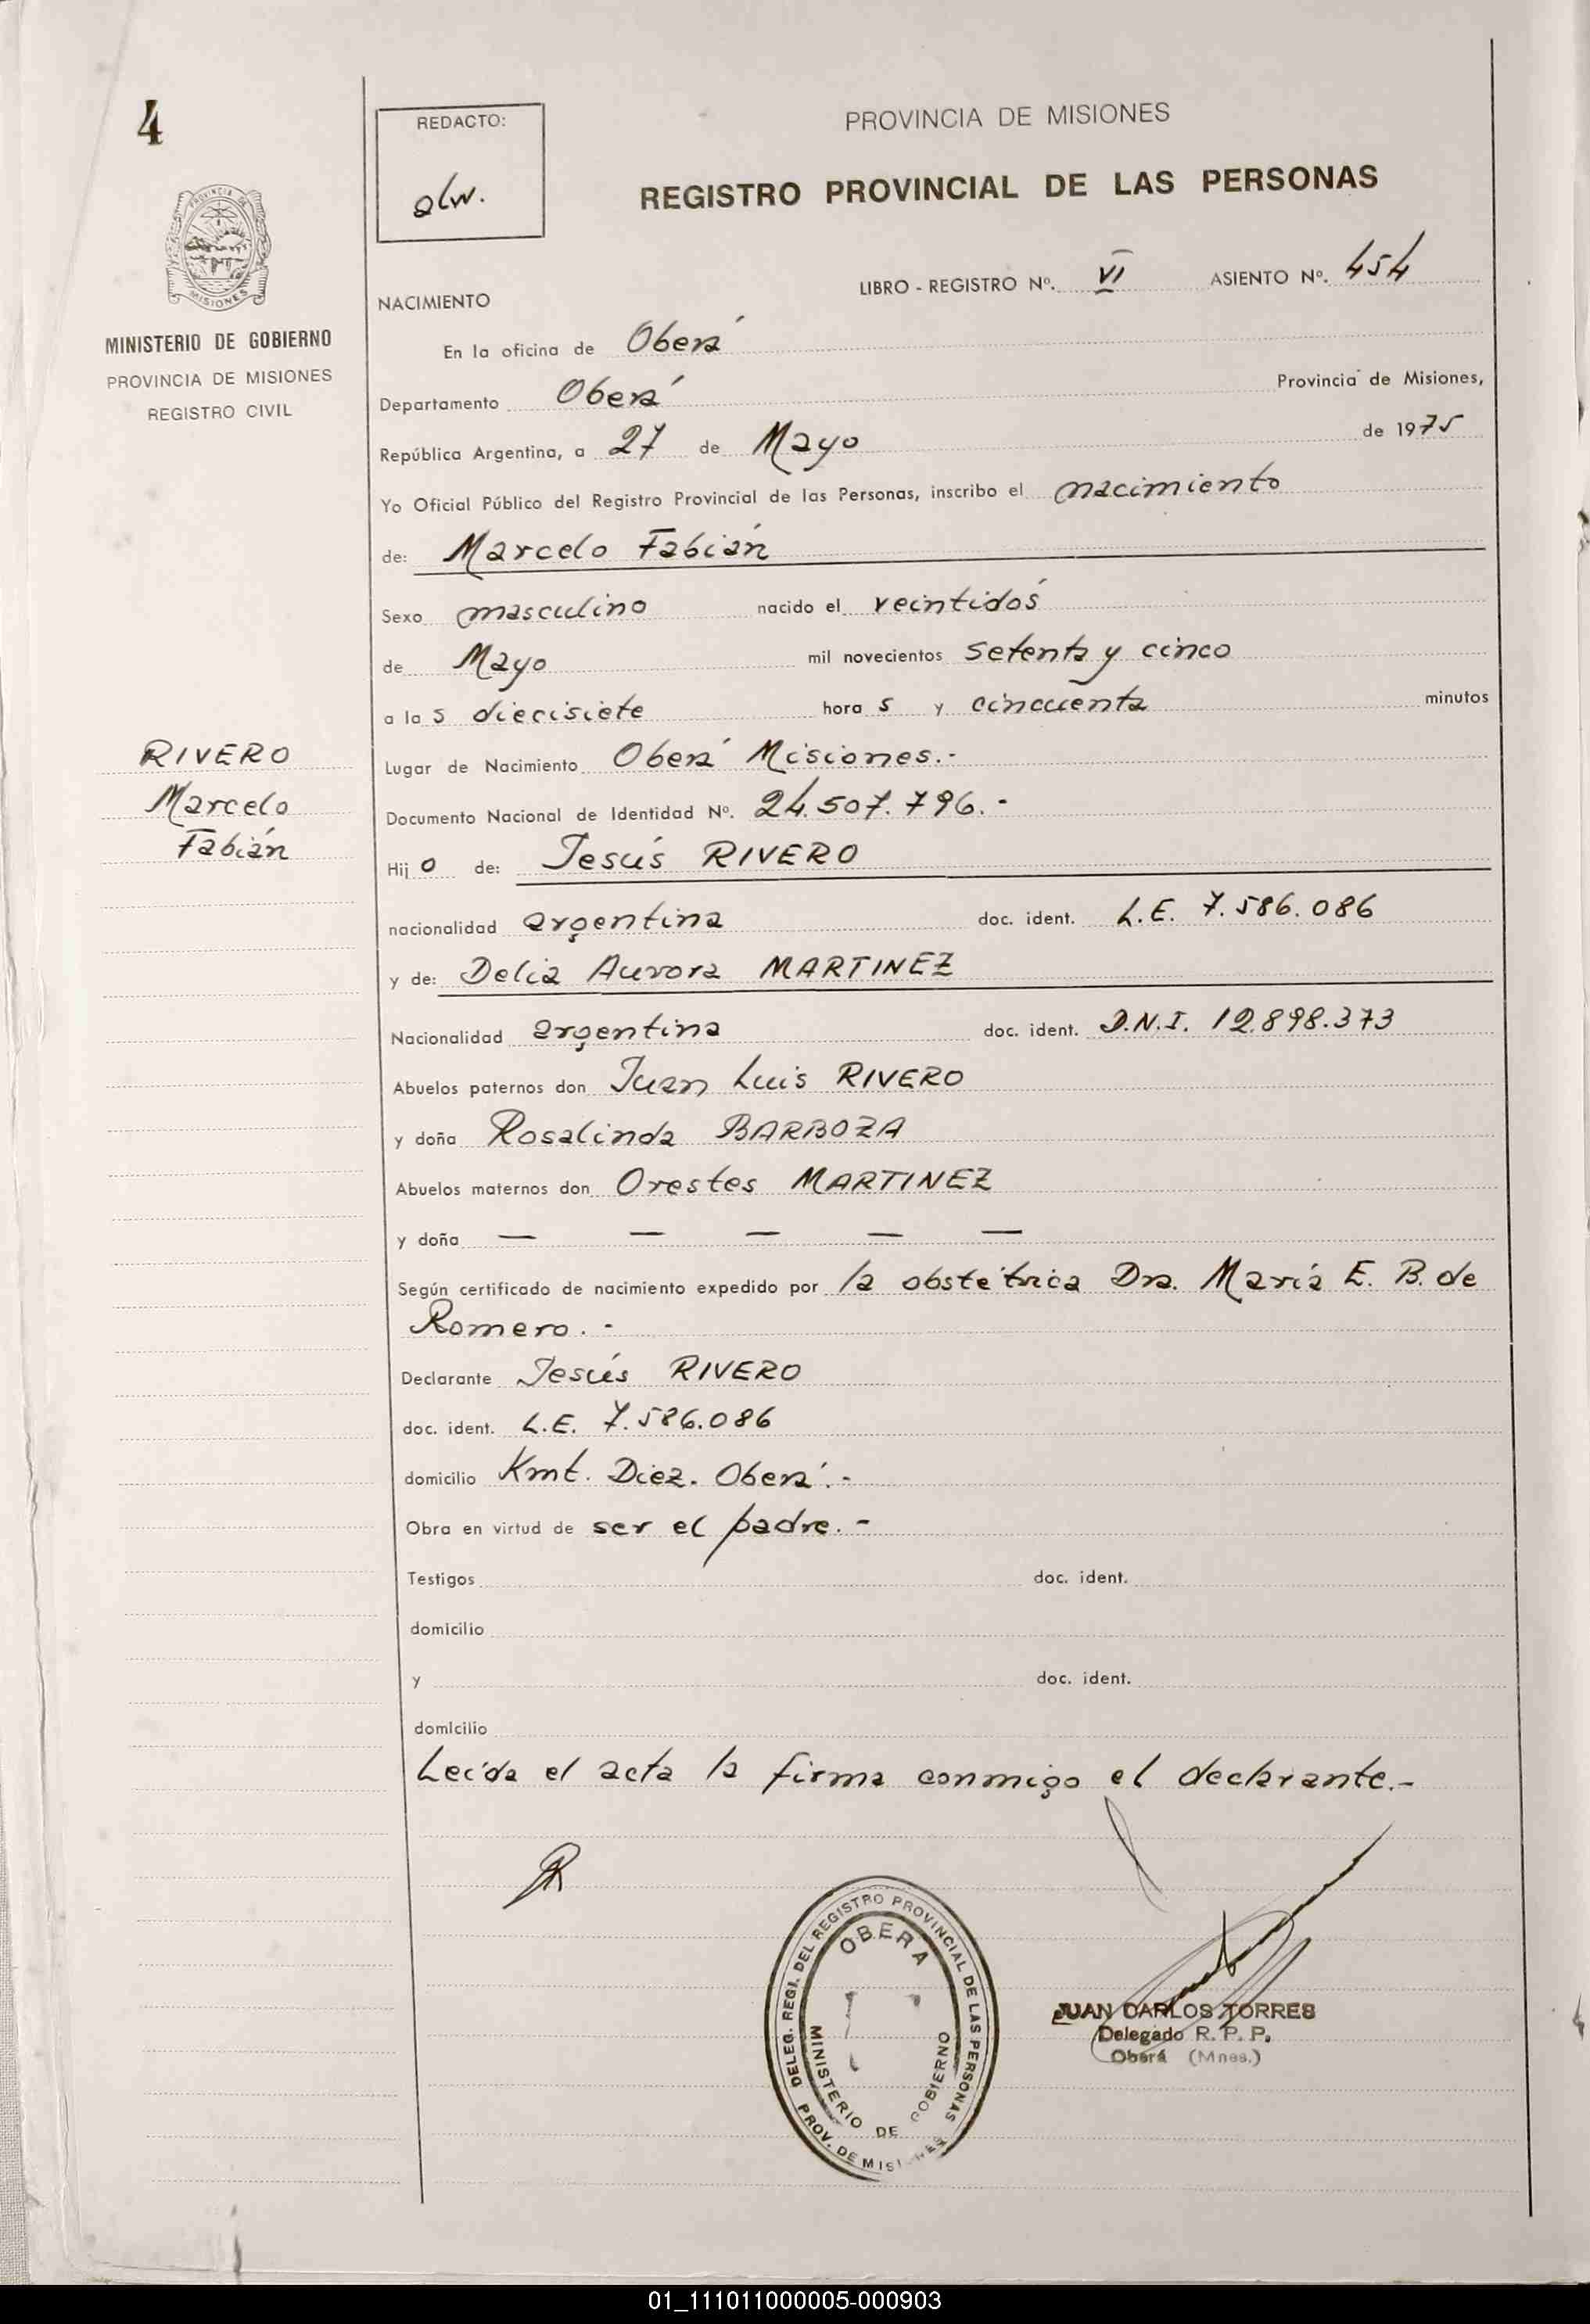 4
REDACTO:
alw.
PROVINCIA DE MISIONES
REGISTRO PROVINCIAL DE LAS PERSONAS
PROVINCIA DE
MISIONES
MINISTERIO DE GOBIERNO
PROVINCIA DE MISIONES
REGISTRO CIVIL
LIBRO - REGISTRO Nº. VI ASIENTO Nº. 454
NACIMIENTO
En la oficina de Oberá
Departamento Oberá Provincia de Misiones,
República Argentina, a 27 de Mayo de 1975
Yo Oficial Público del Registro Provincial de las Personas, inscribo el nacimiento
de: Marcelo Fabián
Sexo masculino nacido el veintidós
de Mayo mil novecientos setenta y cinco
a las diecisiete horas y cincuenta minutos
RIVERO
Marcelo
Fabián
Lugar de Nacimiento Oberá Misiones.-
Documento Nacional de Identidad Nº. 24.507.796.-
Hijo de: Jesús RIVERO
nacionalidad argentina doc. ident. L.E. 7.586.086
y de: Delia Aurora MARTINEZ
Nacionalidad argentina doc. ident. D.N.I. 12.898.373
Abuelos paternos don Juan Luis RIVERO
y doña Rosalinda BARBOZA
Abuelos maternos don Orestes MARTINEZ
y doña — — — — —
Según certificado de nacimiento expedido por la obstétrica Dra. María E. B. de
Romero.-
Declarante Jesús RIVERO
doc. ident. L.E. 7.586.086
domicilio Kmt. Diez. Oberá.-
Obra en virtud de ser el padre.-
Testigos doc. ident.
domicilio
y doc. ident.
domicilio
Leída el acta la firma conmigo el declarante.-
DELEG. REGI. DEL REGISTRO PROVINCIAL DE LAS PERSONAS
OBERA
MINISTERIO DE GOBIERNO
PROV. DE MISIONES
JUAN CARLOS TORRES
Delegado R. P. P.
Oberá (Mnes.)
01_111011000005-000903